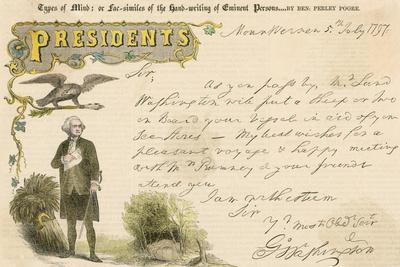 Types of Mind; or Fac-similes of the Hand-writing of Eminent Persons....BY BEN: PERLEY POORE.
PRESIDENTS
Mount Vernon 5th July 1797
Sir,
As you pass by, Mr Lund
Washington will put a Sheep or two
on Board your Vessel in aid of your
Sea Stores — My best wishes for a
pleasant voyage & happy meeting
with Mrs Rumney & your friends
attend you
I am with esteem
Sir
Yr most Obedt Servt
Go Washington